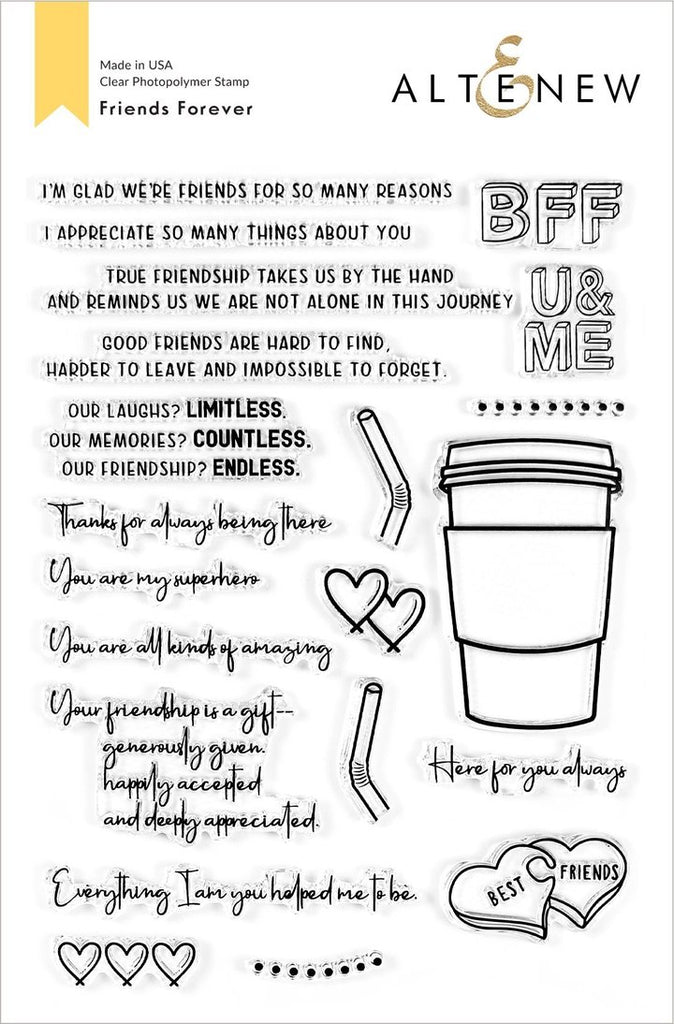 Made in USA
Clear Photopolymer Stamp
Friends Forever
ALTENEW
I'M GLAD WE'RE FRIENDS FOR SO MANY REASONS
BFF
I APPRECIATE SO MANY THINGS ABOUT YOU
TRUE FRIENDSHIP TAKES US BY THE HAND
AND REMINDS US WE ARE NOT ALONE IN THIS JOURNEY
U&
ME
GOOD FRIENDS ARE HARD TO FIND,
HARDER TO LEAVE AND IMPOSSIBLE TO FORGET.
OUR LAUGHS? LIMITLESS.
OUR MEMORIES? COUNTLESS.
OUR FRIENDSHIP? ENDLESS.
Thanks for always being there
You are my superhero
You are all kinds of amazing
Your friendship is a gift--
generously given.
happily accepted
and deeply appreciated.
Here for you always
Everything I am you helped me to be.
BEST
FRIENDS